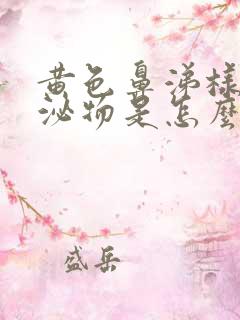 黄色鼻涕样
泌物是怎麽
盛岳